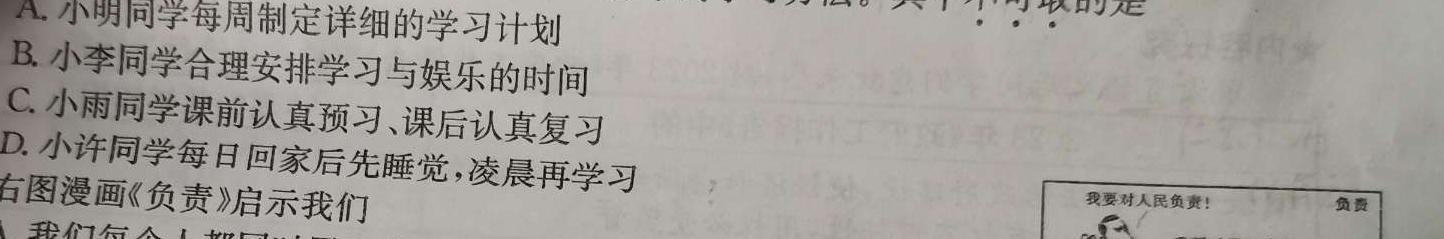 不可取的是
A. 小明同学每周制定详细的学习计划
B. 小李同学合理安排学习与娱乐的时间
C. 小雨同学课前认真预习、课后认真复习
D. 小许同学每日回家后先睡觉,凌晨再学习
右图漫画《负责》启示我们
我要对人民负责!
负责